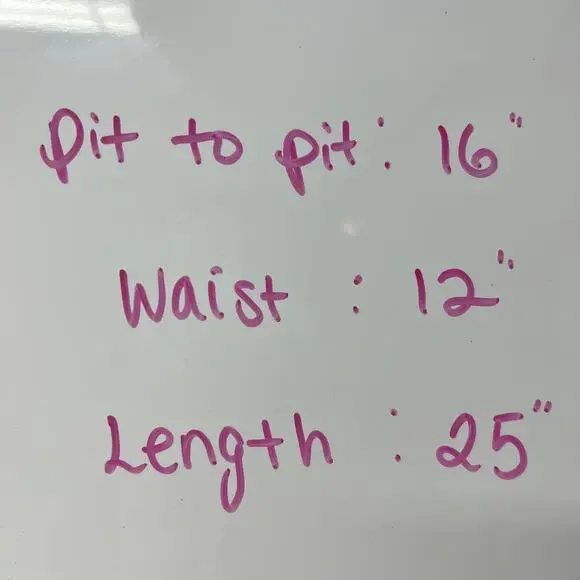 Pit to pit: 16"
Waist : 12"
Length : 25"